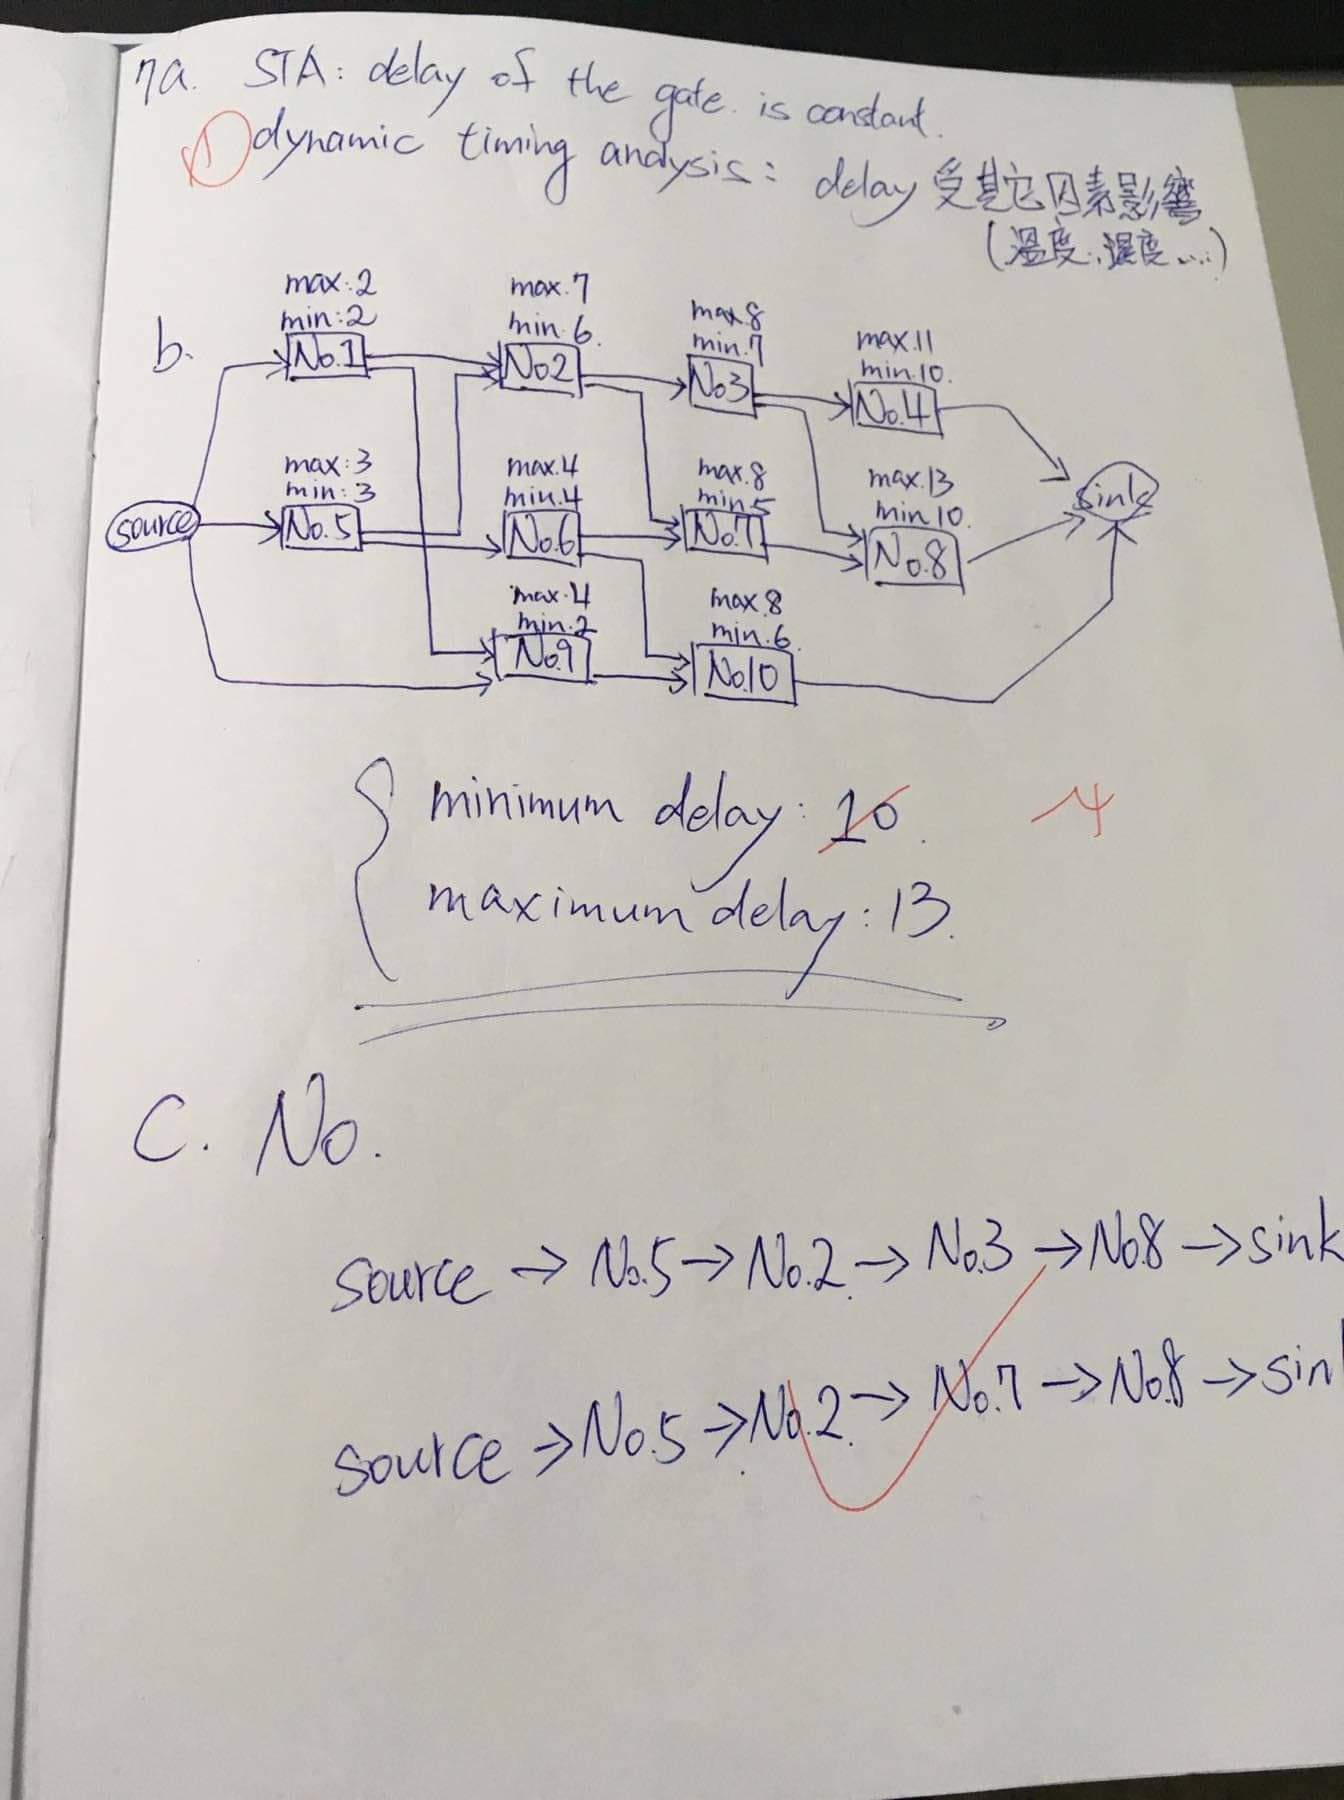 7a. STA: delay of the gate is constant.
dynamic timing analysis: delay 受其它因素影響
(溫度、濕度...)
b.
max:2
min:2
No.1
max.7
min.6
No2
max.8
min.7
No3
max.11
min.10.
No.4
max:3
min:3
source
No.5
max.4
min.4
No.6
max.8
min.5
No.7
max.13
min10.
No.8
sink
max.4
min.2
No.9
max.8
min.6.
No.10
minimum delay: 10.
-4
maximum delay: 13.
C. No.
source → No.5 → No.2 → No.3 → No.8 → sink
source → No.5 → No.2 → No.7 → No.8 → sin